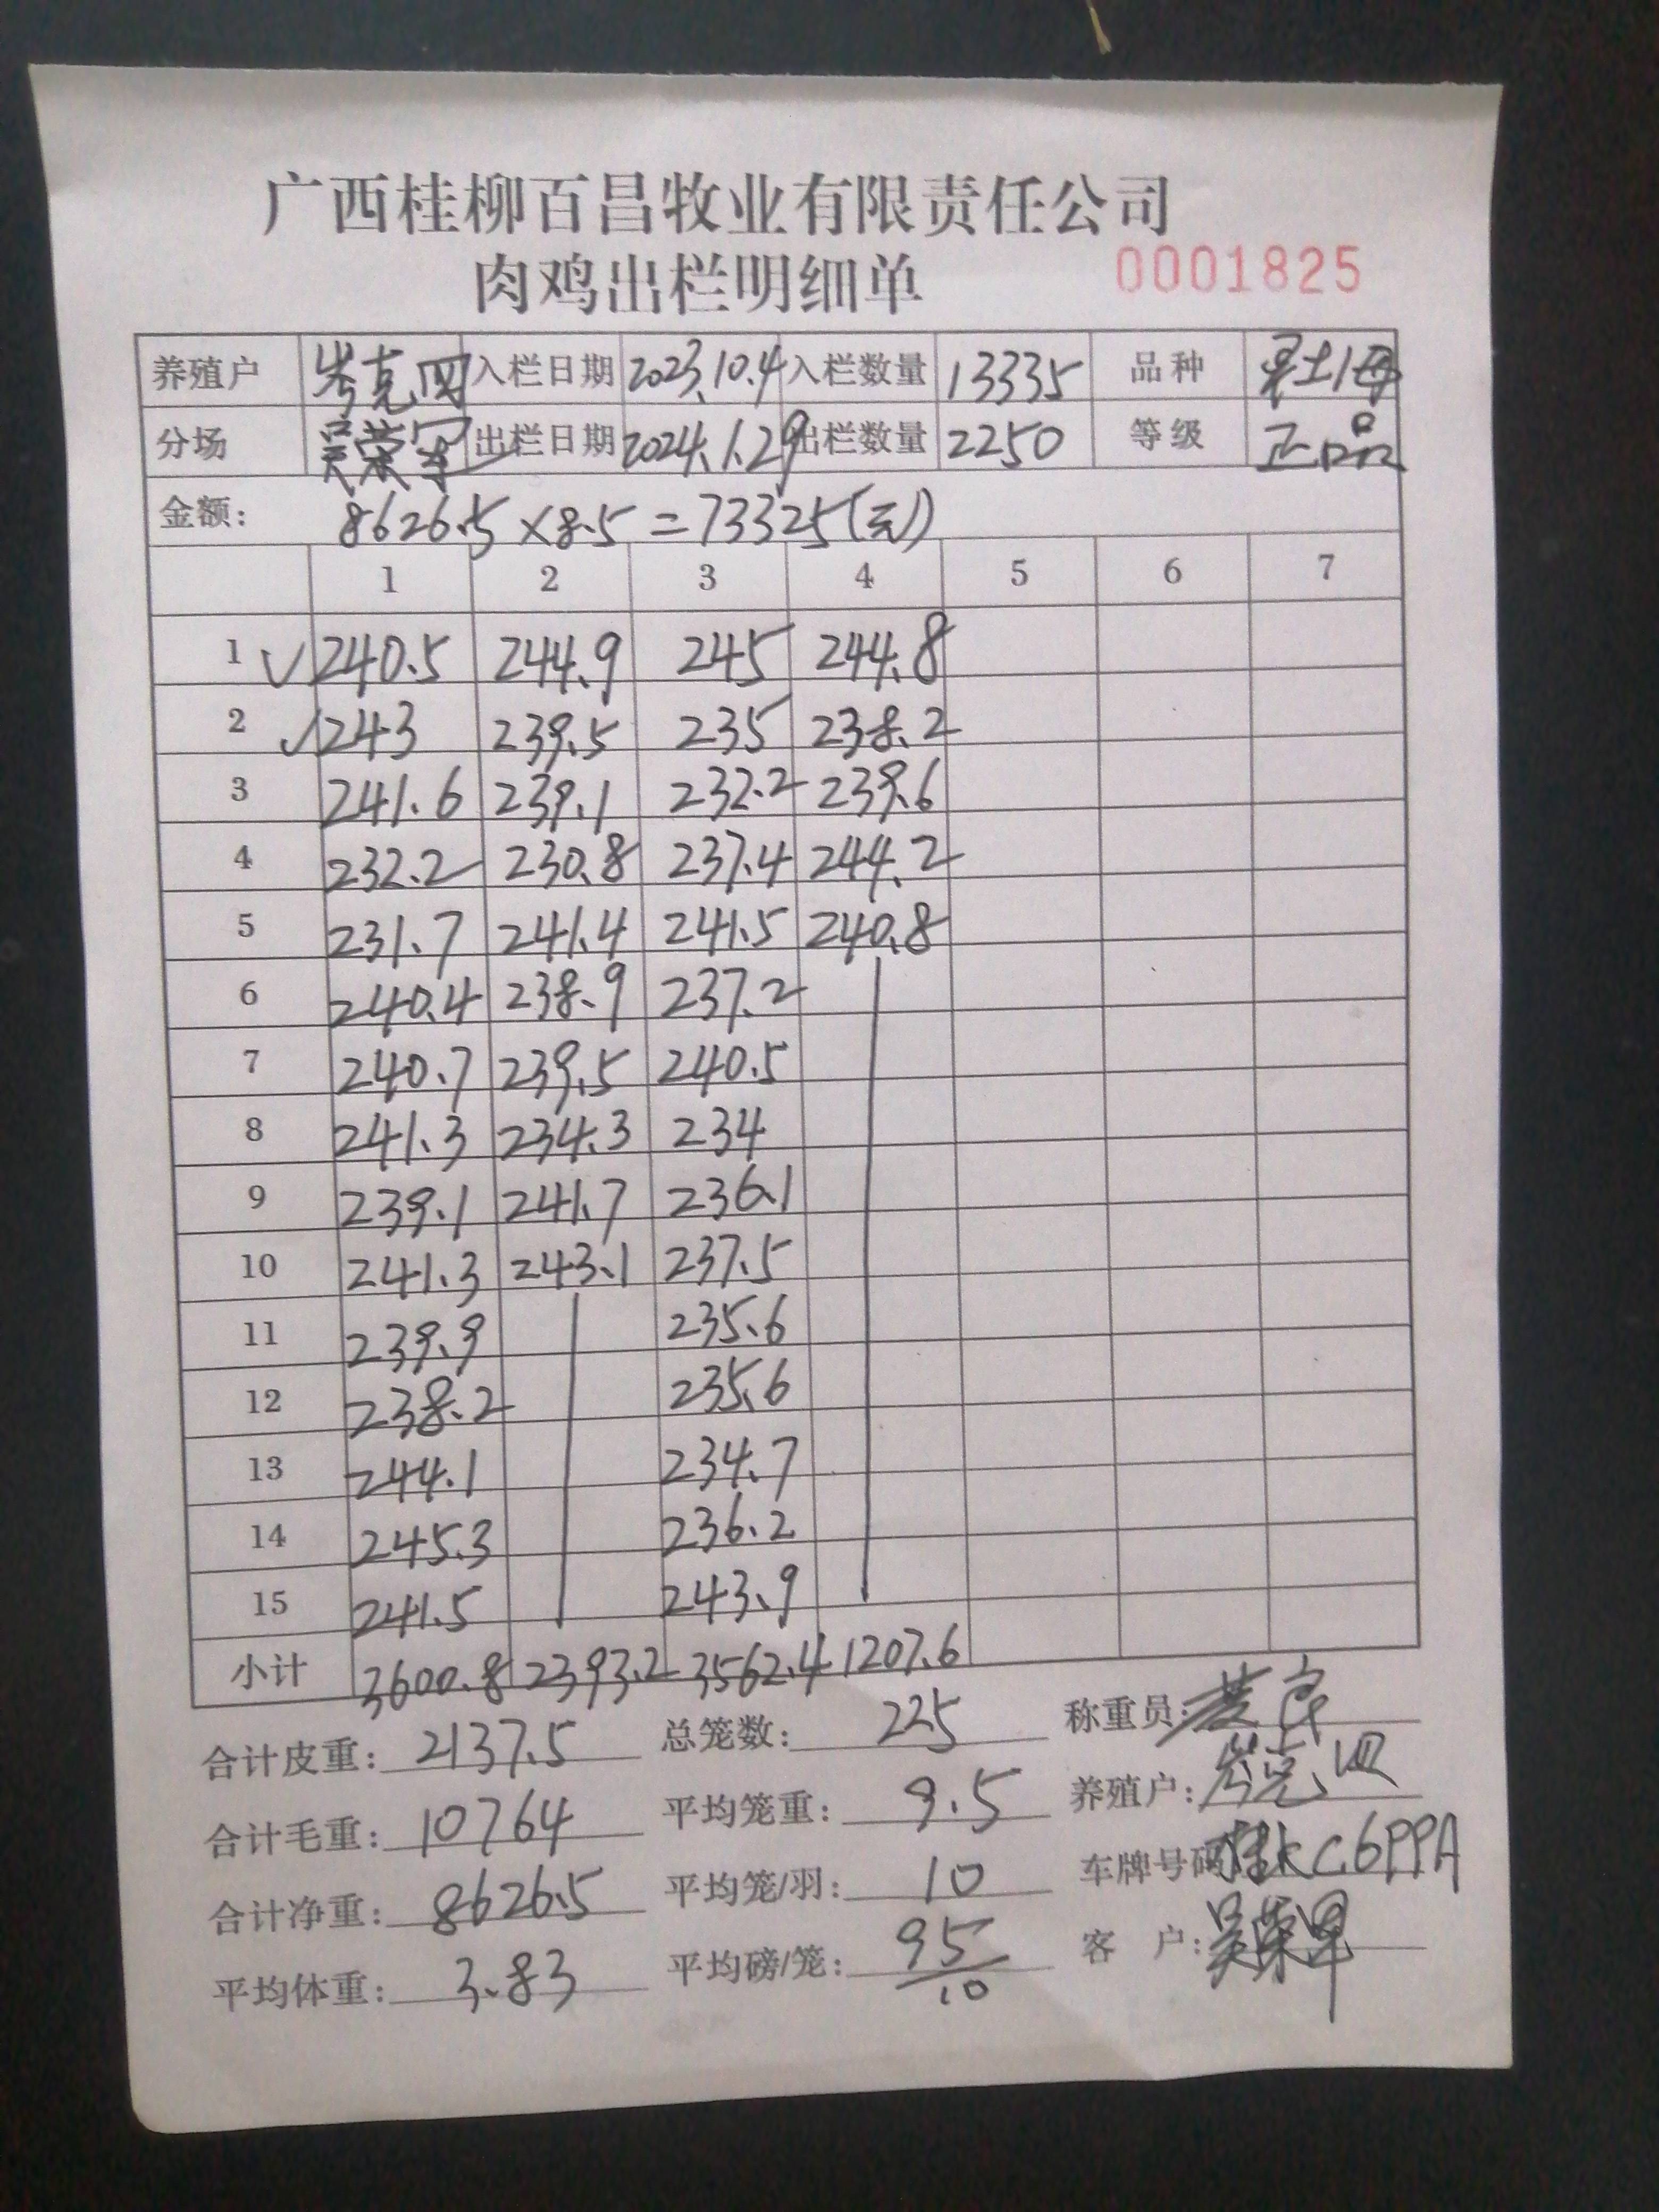 广西桂柳百昌牧业有限责任公司
肉鸡出栏明细单 0001825
养殖户 岑克四 入栏日期 2023.10.4 入栏数量 13335 品种
分场 出栏日期 2024.1.29 出栏数量 2250 等级 正品
金额: 8626.5×8.5=73325(元)
1 2 3 4 5 6 7
1 √ 240.5 244.9 245 244.8
2 √ 243 239.5 235 238.2
3 241.6 239.1 232.2 239.6
4 232.2 230.8 237.4 244.2
5 231.7 241.4 241.5 240.8
6 240.4 238.9 237.2
7 240.7 239.5 240.5
8 241.3 234.3 234
9 239.1 241.7 236.1
10 241.3 243.1 237.5
11 239.9 235.6
12 238.2 235.6
13 244.1 234.7
14 245.3 236.2
15 241.5 243.9
小计 3600.8 2393.2 3562.4 1207.6
合计皮重: 2137.5 总笼数: 225 称重员:
合计毛重: 10764 平均笼重: 9.5 养殖户: 岑克四
合计净重: 8626.5 平均笼/羽: 10 车牌号码
平均体重: 3.83 平均磅/笼: 95/10 客 户: